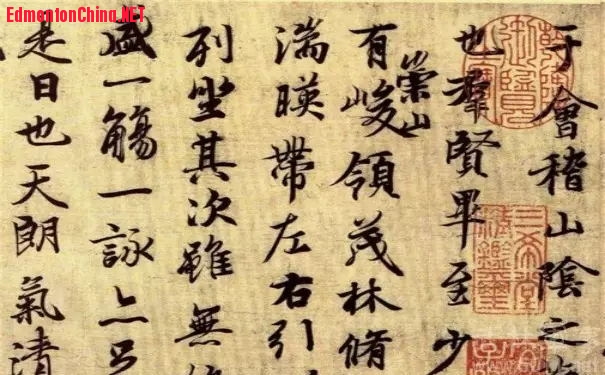 EdmontonChina.NET
于會稽山陰之
也羣賢畢至少
有崇山峻領茂林脩
湍暎帶左右引
列坐其次雖無
盛一觴一詠亦足
是日也天朗氣清
三希堂精鑑璽